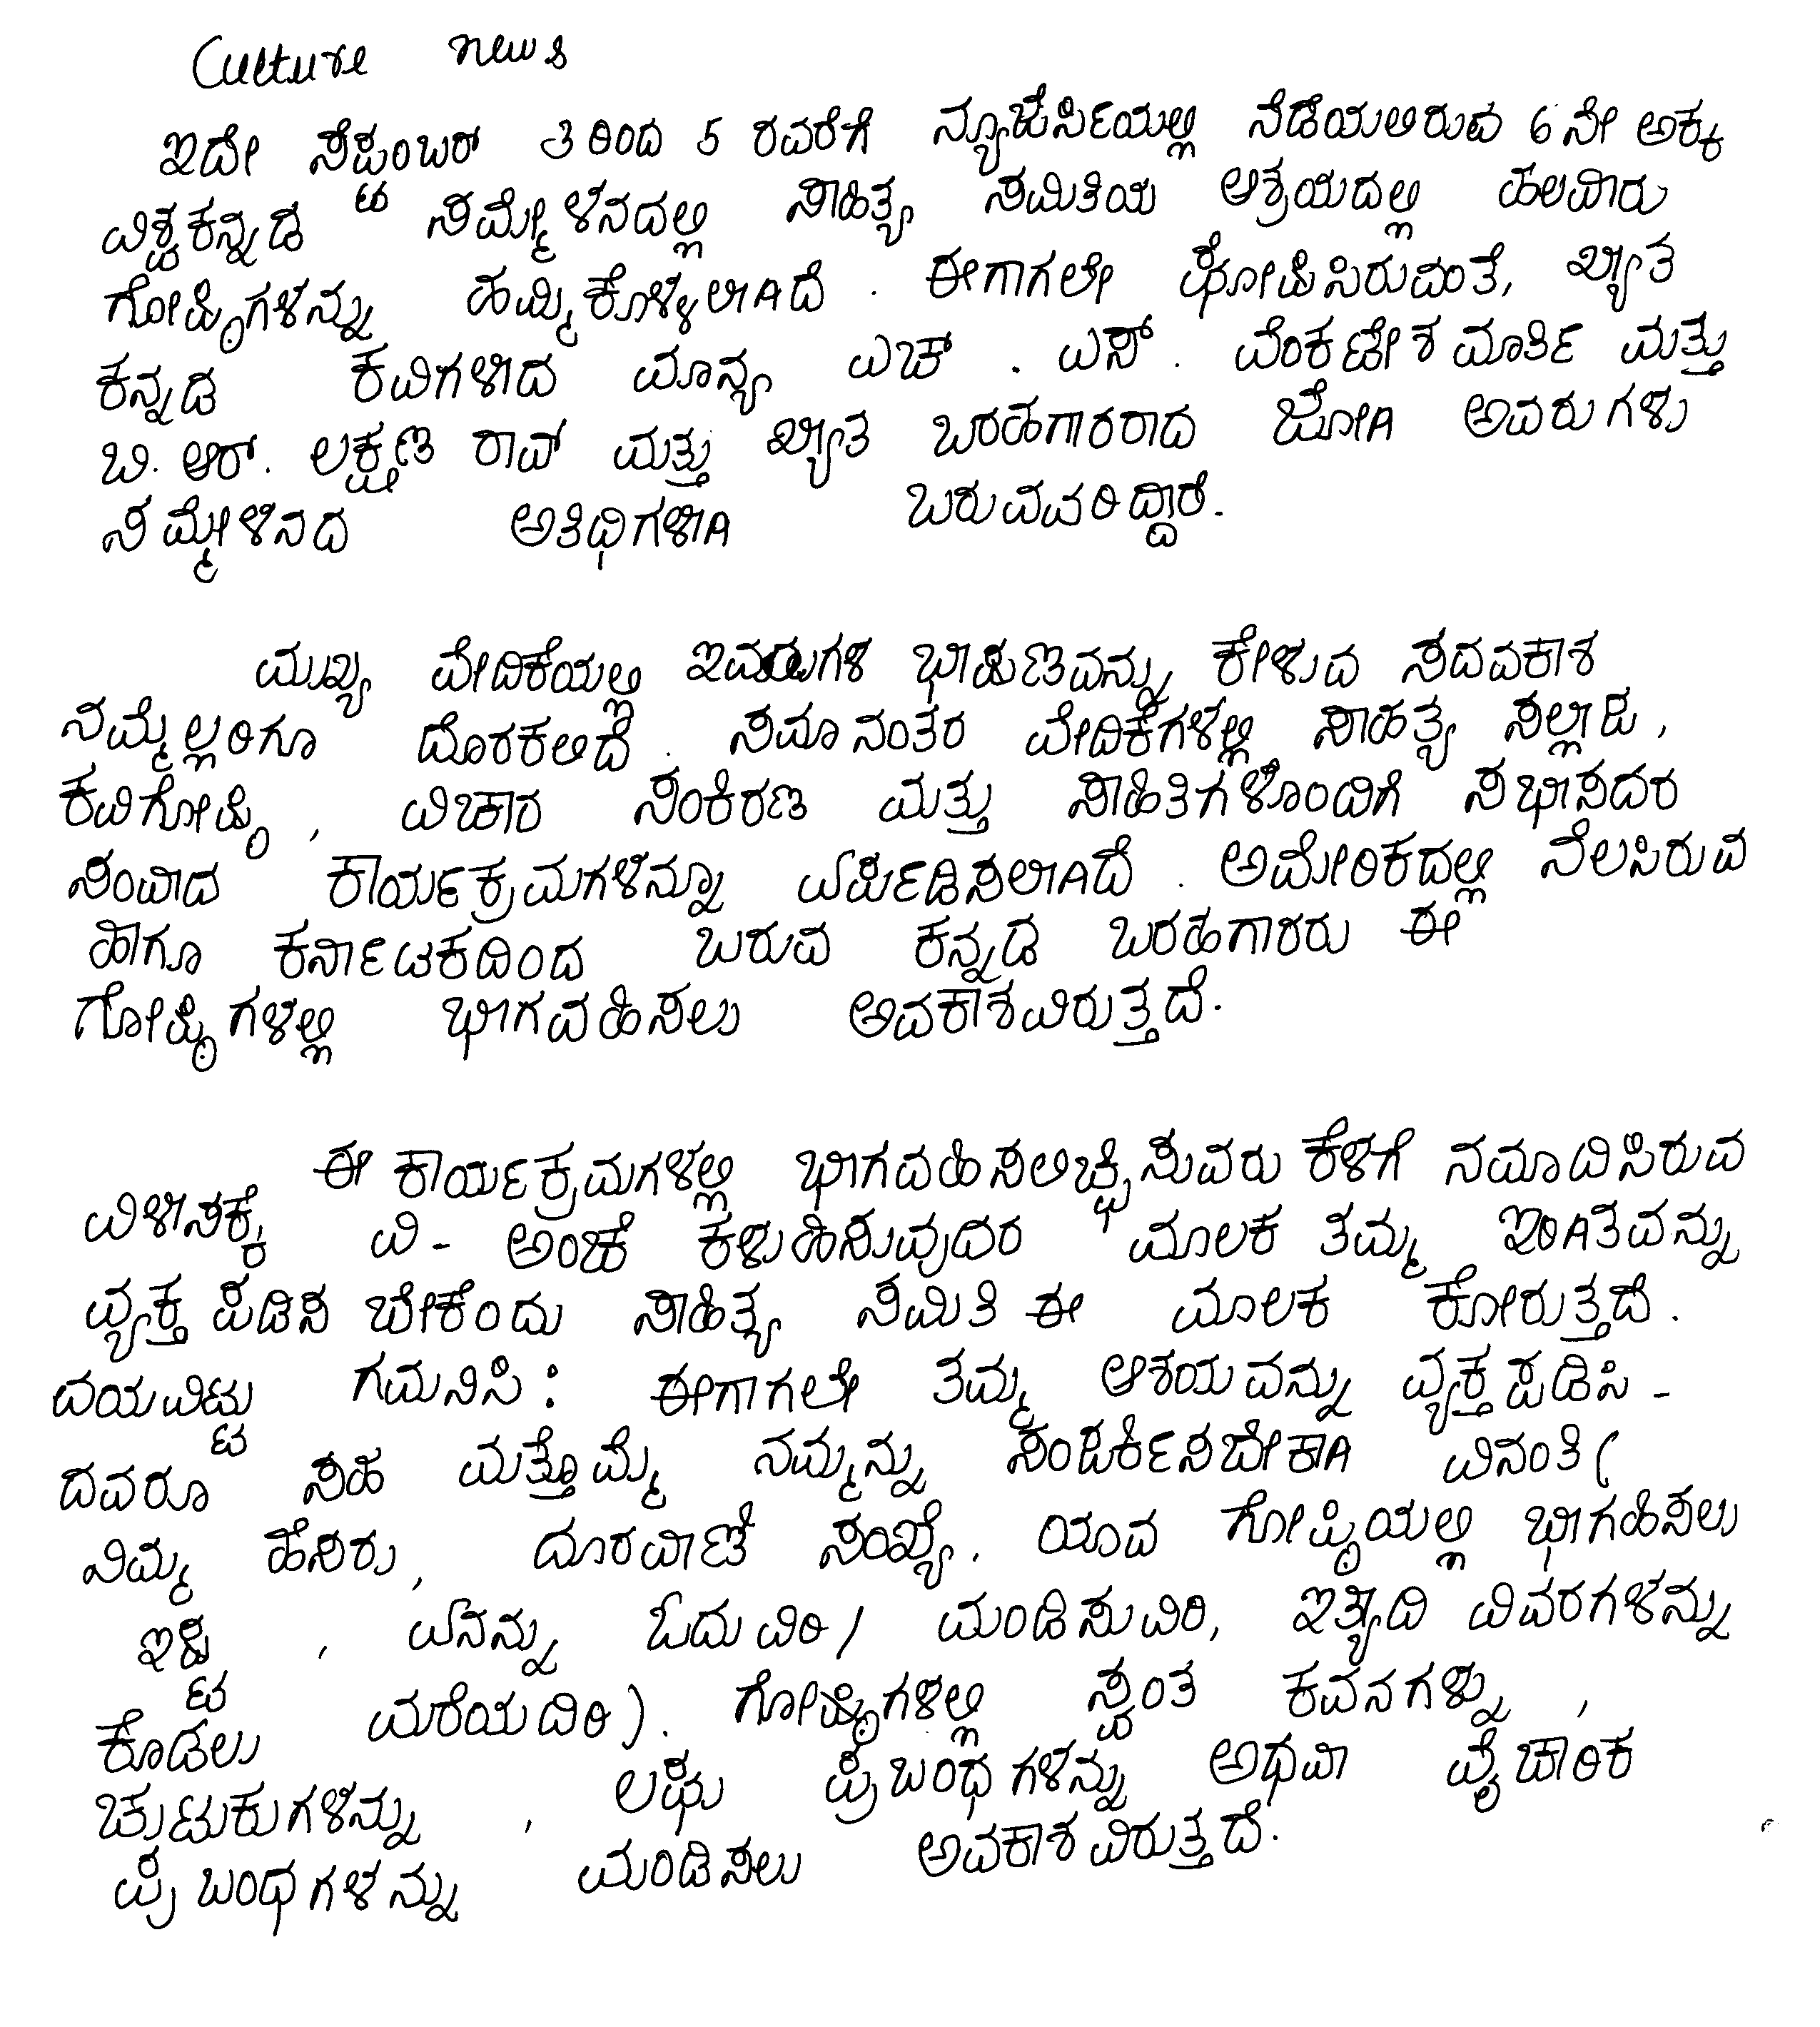 Culture news
ಇದೇ ಸೆಪ್ಟಂಬರ್ 3 ರಿಂದ 5 ರವರೆಗೆ ನ್ಯೂಜೆರ್ಸಿಯಲ್ಲಿ ನೆಡೆಯಲಿರುವ 6 ನೇ ಅಕ್ಕ
ವಿಶ್ವಕನ್ನಡ ಸಮ್ಮೇಳನದಲ್ಲಿ ಸಾಹಿತ್ಯ ಸಮಿತಿಯ ಆಶ್ರಯದಲ್ಲಿ ಹಲವಾರು
ಗೋಷ್ಠಿಗಳನ್ನು ಹಮ್ಮಿಕೊಳ್ಳಲಾಗಿದೆ . ಈಗಾಗಲೇ ಘೋಷಿಸಿರುವಂತೆ, ಖ್ಯಾತ
ಕನ್ನಡ ಕವಿಗಳಾದ ಮಾನ್ಯ ಎಚ್ . ಎಸ್ . ವೆಂಕಟೇಶಮೂರ್ತಿ ಮತ್ತು
ಬಿ. ಆರ್. ಲಕ್ಷ್ಮಣ ರಾವ್ ಮತ್ತು ಖ್ಯಾತ ಬರಹಗಾರರಾದ ಜೋಗಿ ಅವರುಗಳು
ಸಮ್ಮೇಳನದ ಅತಿಥಿಗಳಾಗಿ ಬರುವವರಿದ್ದಾರೆ.
ಮುಖ್ಯ ವೇದಿಕೆಯಲ್ಲಿ ಇವರುಗಳ ಭಾಷಣವನ್ನು ಕೇಳುವ ಸದವಕಾಶ
ನಮ್ಮೆಲ್ಲರಿಗೂ ದೊರಕಲಿದೆ . ಸಮಾನಂತರ ವೇದಿಕೆಗಳಲ್ಲಿ ಸಾಹಿತ್ಯ ಸಲ್ಲಾಪ ,
ಕವಿಗೋಷ್ಠಿ , ವಿಚಾರ ಸಂಕಿರಣ ಮತ್ತು ಸಾಹಿತಿಗಳೊಂದಿಗೆ ಸಭಾಸದರ
ಸಂವಾದ ಕಾರ್ಯಕ್ರಮಗಳನ್ನೂ ಏರ್ಪಡಿಸಲಾಗಿದೆ . ಅಮೇರಿಕದಲ್ಲಿ ನೆಲಸಿರುವ
ಹಾಗೂ ಕರ್ನಾಟಕದಿಂದ ಬರುವ ಕನ್ನಡ ಬರಹಗಾರರು ಈ
ಗೋಷ್ಠಿಗಳಲ್ಲಿ ಭಾಗವಹಿಸಲು ಅವಕಾಶವಿರುತ್ತದೆ.
ಈ ಕಾರ್ಯಕ್ರಮಗಳಲ್ಲಿ ಭಾಗವಹಿಸಲಿಚ್ಛಿಸುವರು ಕೆಳಗೆ ನಮೂದಿಸಿರುವ
ವಿಳಾಸಕ್ಕೆ ವಿ - ಅಂಚೆ ಕಳುಹಿಸುವುದರ ಮೂಲಕ ತಮ್ಮ ಇಂಗಿತವನ್ನು
ವ್ಯಕ್ತ ಪಡಿಸ ಬೇಕೆಂದು ಸಾಹಿತ್ಯ ಸಮಿತಿ ಈ ಮೂಲಕ ಕೋರುತ್ತದೆ .
ದಯವಿಟ್ಟು ಗಮನಿಸಿ : ಈಗಾಗಲೇ ತಮ್ಮ ಆಶಯವನ್ನು ವ್ಯಕ್ತಪಡಿಸಿ -
ದವರೂ ಸಹ ಮತ್ತೊಮ್ಮೆ ನಮ್ಮನ್ನು ಸಂಪರ್ಕಿಸಬೇಕಾಗಿ ವಿನಂತಿ (
ನಿಮ್ಮ ಹೆಸರು , ದೂರವಾಣಿ ಸಂಖ್ಯೆ , ಯಾವ ಗೋಷ್ಠಿಯಲ್ಲಿ ಭಾಗಹಿಸಲು
ಇಷ್ಟ , ಏನನ್ನು ಓದುವಿರಿ / ಮಂಡಿಸುವಿರಿ, ಇತ್ಯಾದಿ ವಿವರಗಳನ್ನು
ಕೊಡಲು ಮರೆಯದಿರಿ ) . ಗೋಷ್ಠಿಗಳಲ್ಲಿ ಸ್ವಂತ ಕವನಗಳ್ನು ,
ಚುಟುಕುಗಳನ್ನು , ಲಘು ಪ್ರಬಂಧಗಳನ್ನು ಅಥವಾ ವೈಚಾರಿಕ
ಪ್ರಬಂಧಗಳನ್ನು ಮಂಡಿಸಲು ಅವಕಾಶವಿರುತ್ತದೆ.